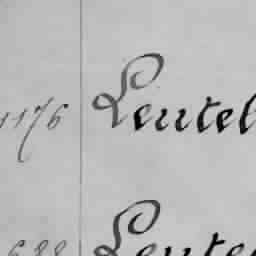 1176 Leutel
688 Leute